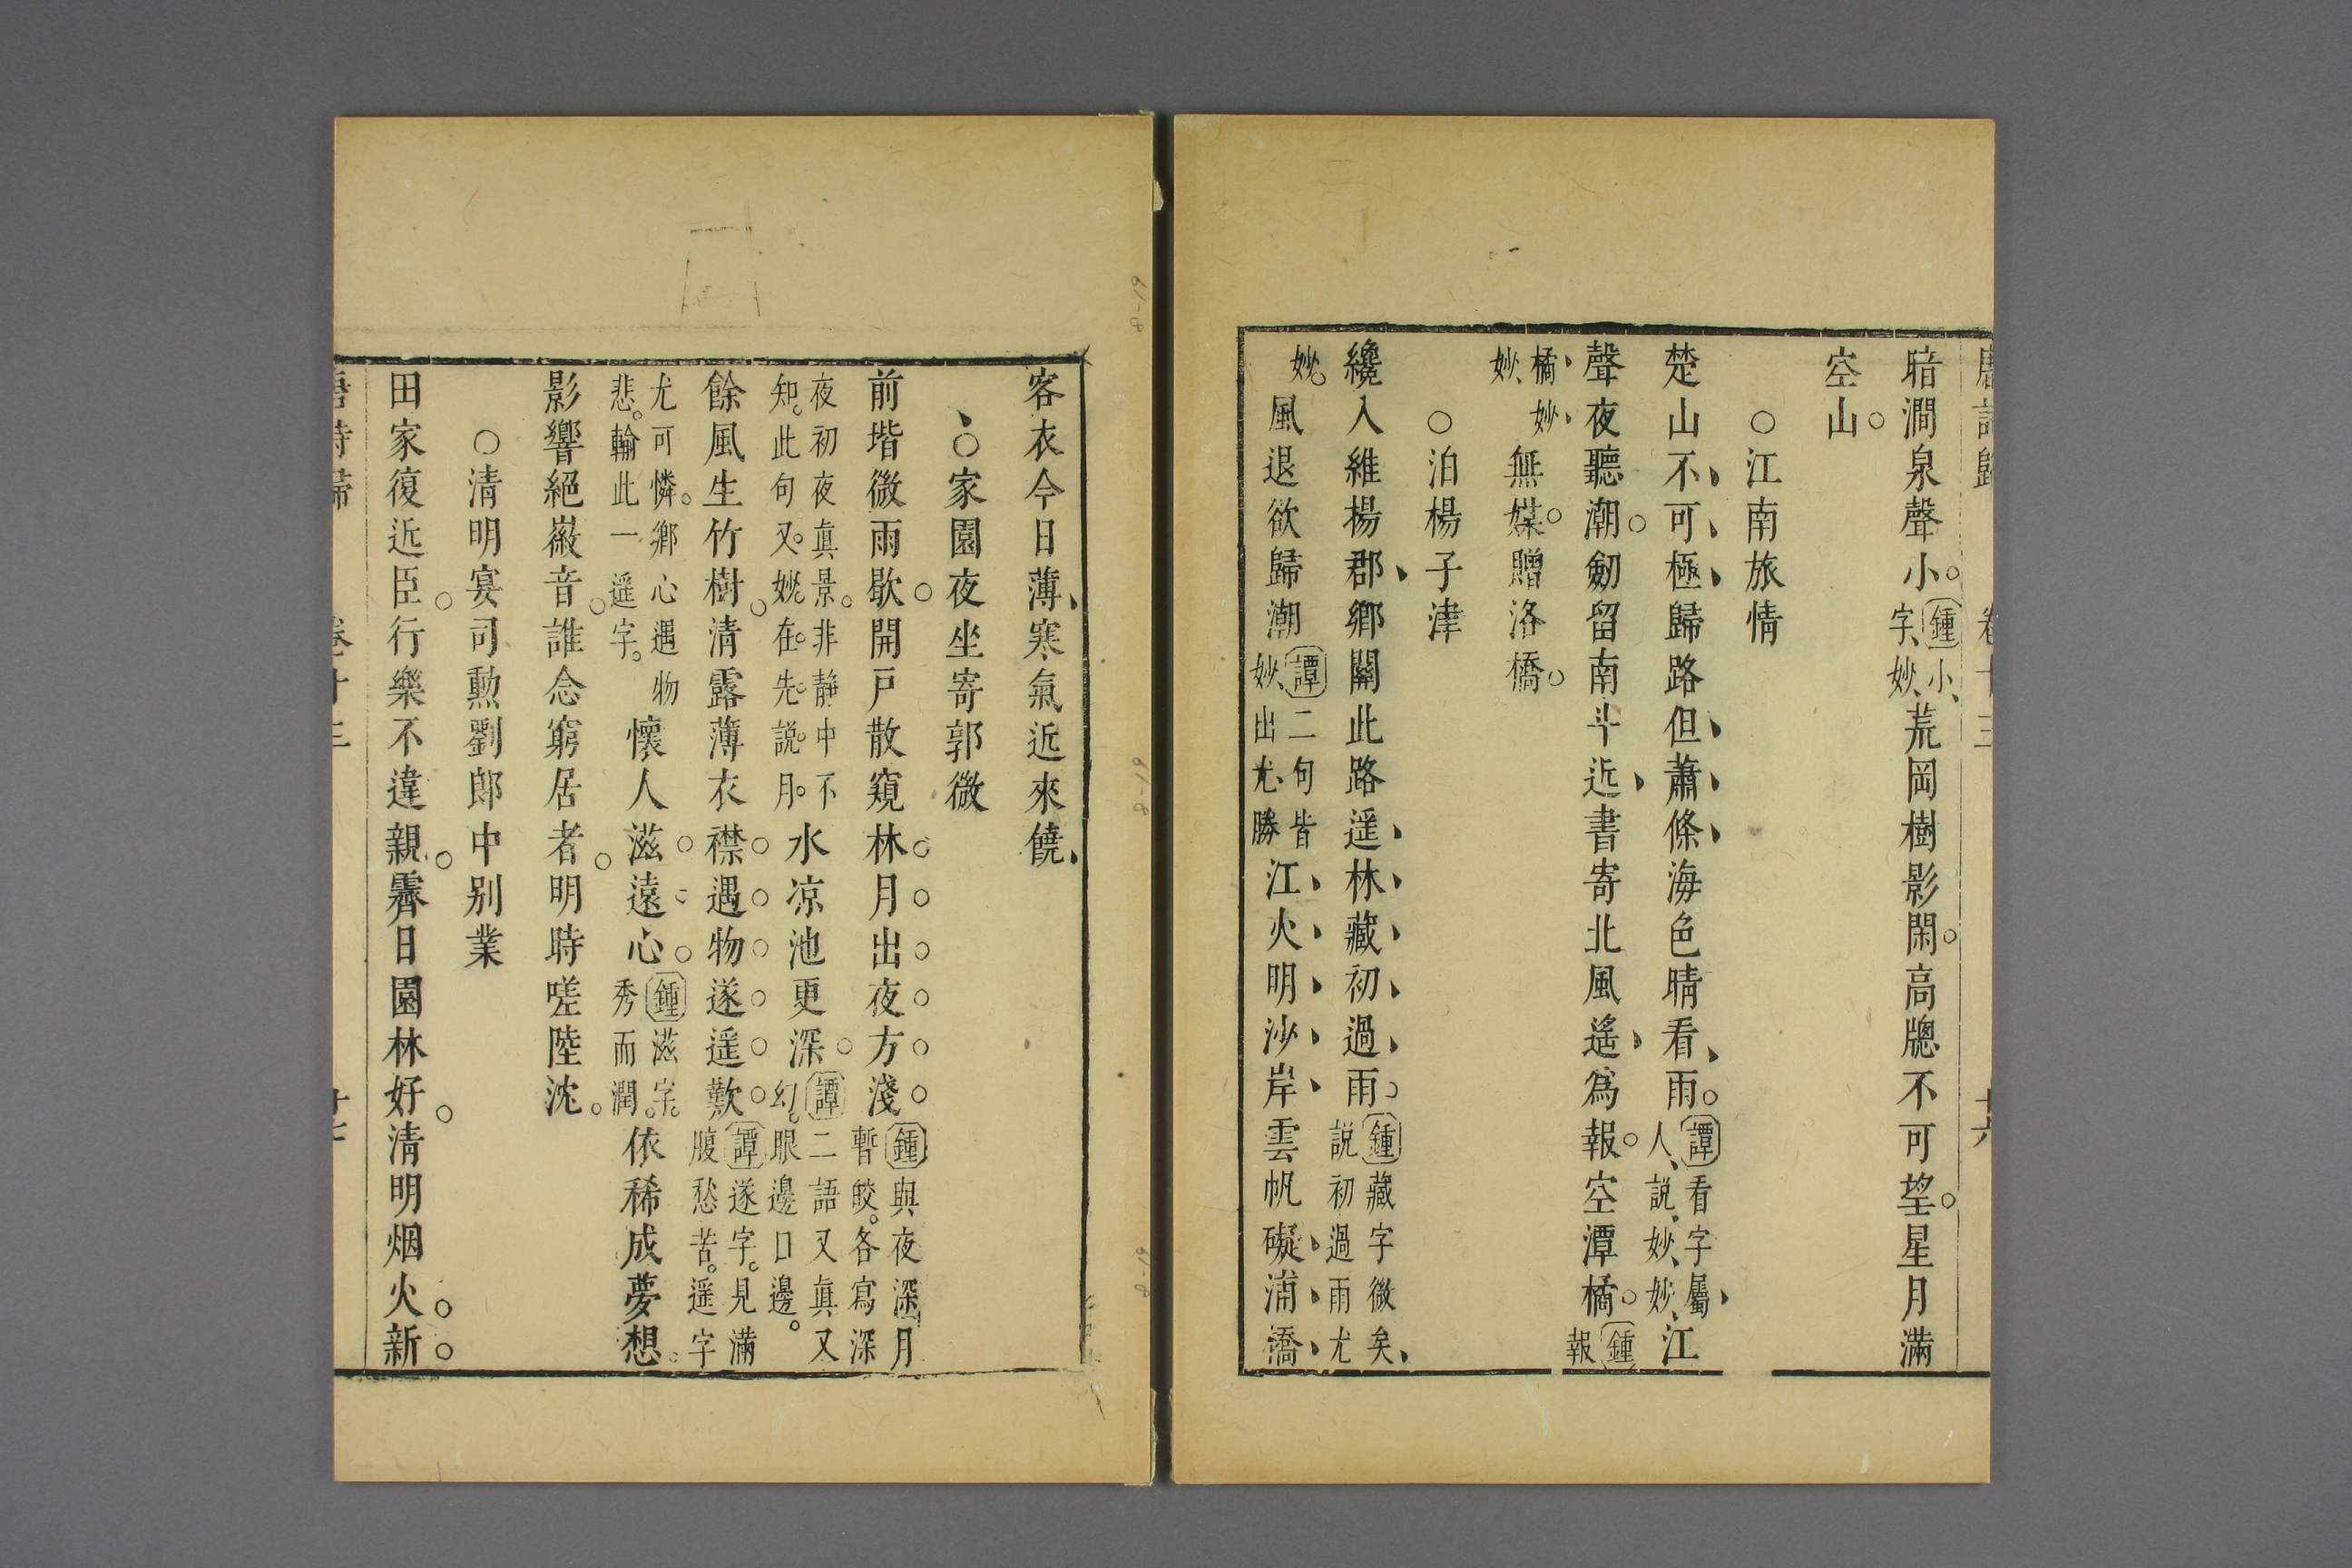 唐詩歸 卷十三 十六
暗澗泉聲小鍾小字妙荒岡樹影閑高牕不可望星月滿
空山
○江南旅情
楚山不可極歸路但蕭條海色晴看雨譚看字屬人說妙妙江
聲夜聽潮劒留南斗近書寄北風遙爲報空潭橘鍾報
橘妙妙無媒贈洛橋
○泊楊子津
纔入維楊郡鄉關此路遥林藏初過雨鍾藏字微矣說初過雨尤
妙風退欲歸潮譚二句皆妙出尤勝江火明沙岸雲帆礙浦橋
客衣今日薄寒氣近來饒
○家園夜坐寄郭微
前堦微雨歇開戸散窺林月出夜方淺鍾與夜深月暫皎各寫深
夜初夜真景非静中不知此句又妙在先說月水凉池更深譚二語又真又幻眼邊口邊
餘風生竹樹清露薄衣襟遇物遂遥歎譚遂字見滿腹愁苦遥字
尤可憐鄉心遇物悲輸此一遥字懷人滋遠心鍾滋字秀而潤依稀成夢想
影響絕嶶音誰念窮居者明時嗟陸沈
○清明宴司勲劉郎中别業
田家復近臣行樂不違親霽日園林好清明烟火新
唐詩歸 卷十三 十七